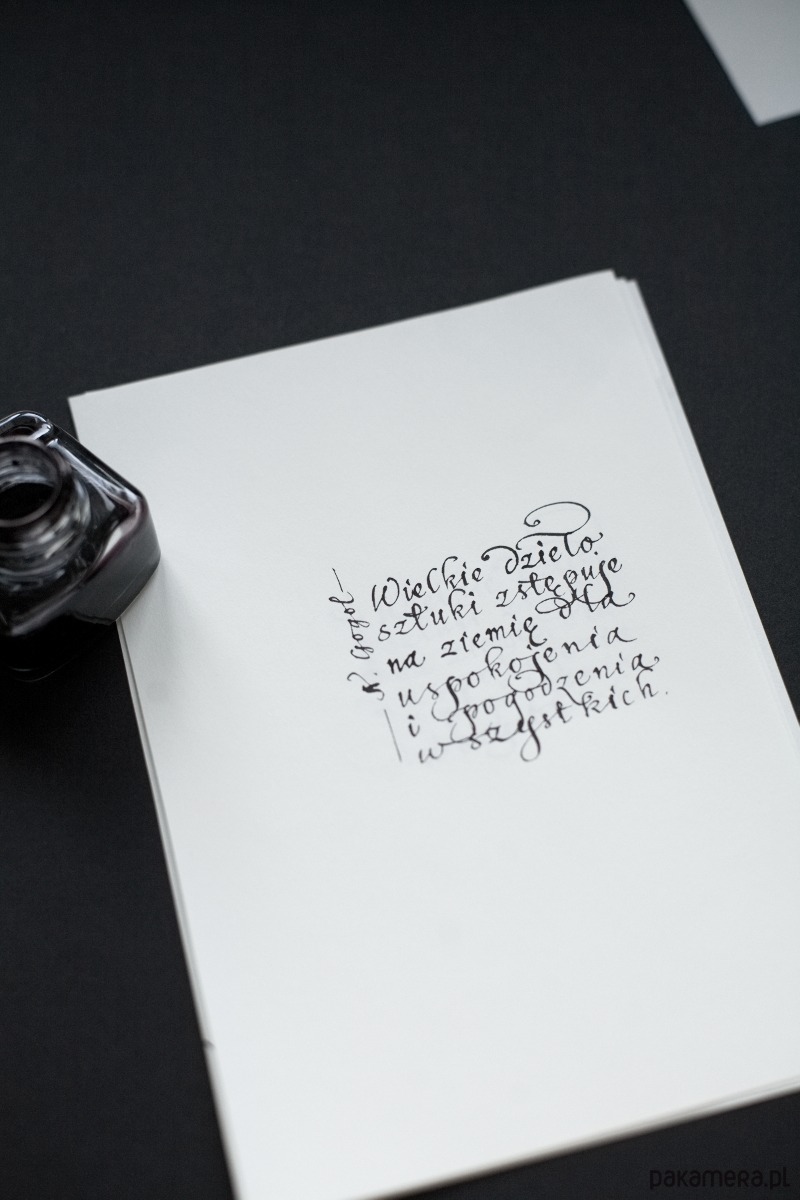 Wielkie dzieło
sztuki zstępuje
na ziemię dla
uspokojenia
i pogodzenia
wszystkich.
— N. Gogol —
pakamera.pl